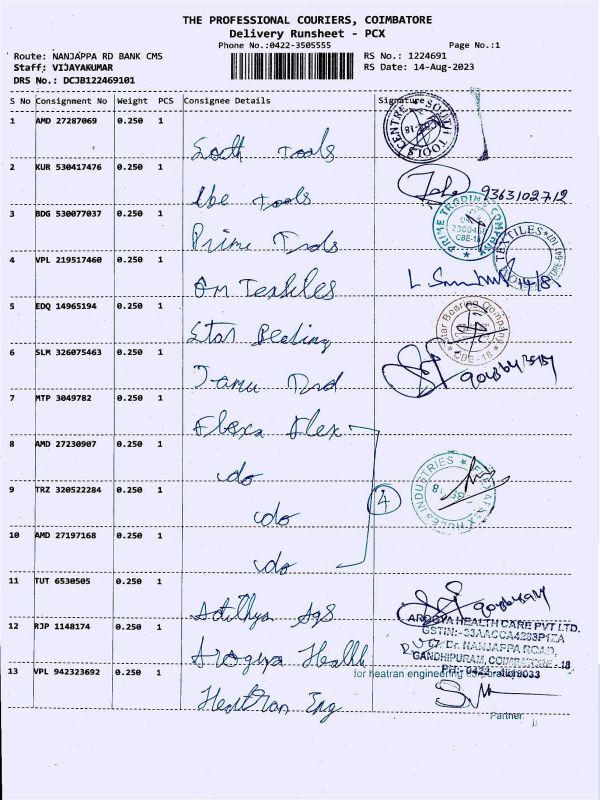 THE PROFESSIONAL COURIERS, COIMBATORE
Delivery Runsheet - PCX
Phone No.:0422-3505555
Page No.:1
Route: NANJAPPA RD BANK CMS
RS No.: 1224691
Staff: VIJAYAKUMAR
RS Date: 14-Aug-2023
DRS No.: DCJB122469101
S No Consignment No Weight PCS Consignee Details Signature
1 AMD 27287069 0.250 1
South Tools
SOUTH TOOLS CENTRE
2 KUR 530417476 0.250 1
Tools
9363102712
3 BDG 530077037 0.250 1
Prime
PRIME TRADING COMPANY
CBE-18
4 VPL 219517460 0.250 1
Om Textiles
TEXTILES
14/8
5 EDQ 14965194 0.250 1
Star Bearing
Star Bearing Company
CBE-18
6 SLM 326075463 0.250 1
7 MTP 3049782 0.250 1
Flex
8 AMD 27230907 0.250 1
do
INDUSTRIES
9 TRZ 320522284 0.250 1
do
4
10 AMD 27197168 0.250 1
do
11 TUT 6530505 0.250 1
Adithya Ags
12 RJP 1148174 0.250 1
Arogya Health
AROGYA HEALTH CARE PVT LTD.
Dr. NANJAPPA ROAD,
GANDHIPURAM, COIMBATORE - 18
13 VPL 942323692 0.250 1
Heatran Eng
for heatran engineering corporation
Partner